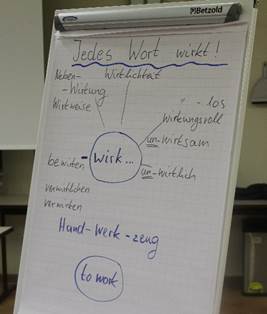 Betzold
Jedes Wort wirkt!
Neben-
-Wirkung
Wirkweise
Wirklichkeit
" - los
wirkungsvoll
un-wirksam
-wirk...
un-wirklich
bewirken
verwirklichen
verwirken
Hand-Werk-zeug
to work